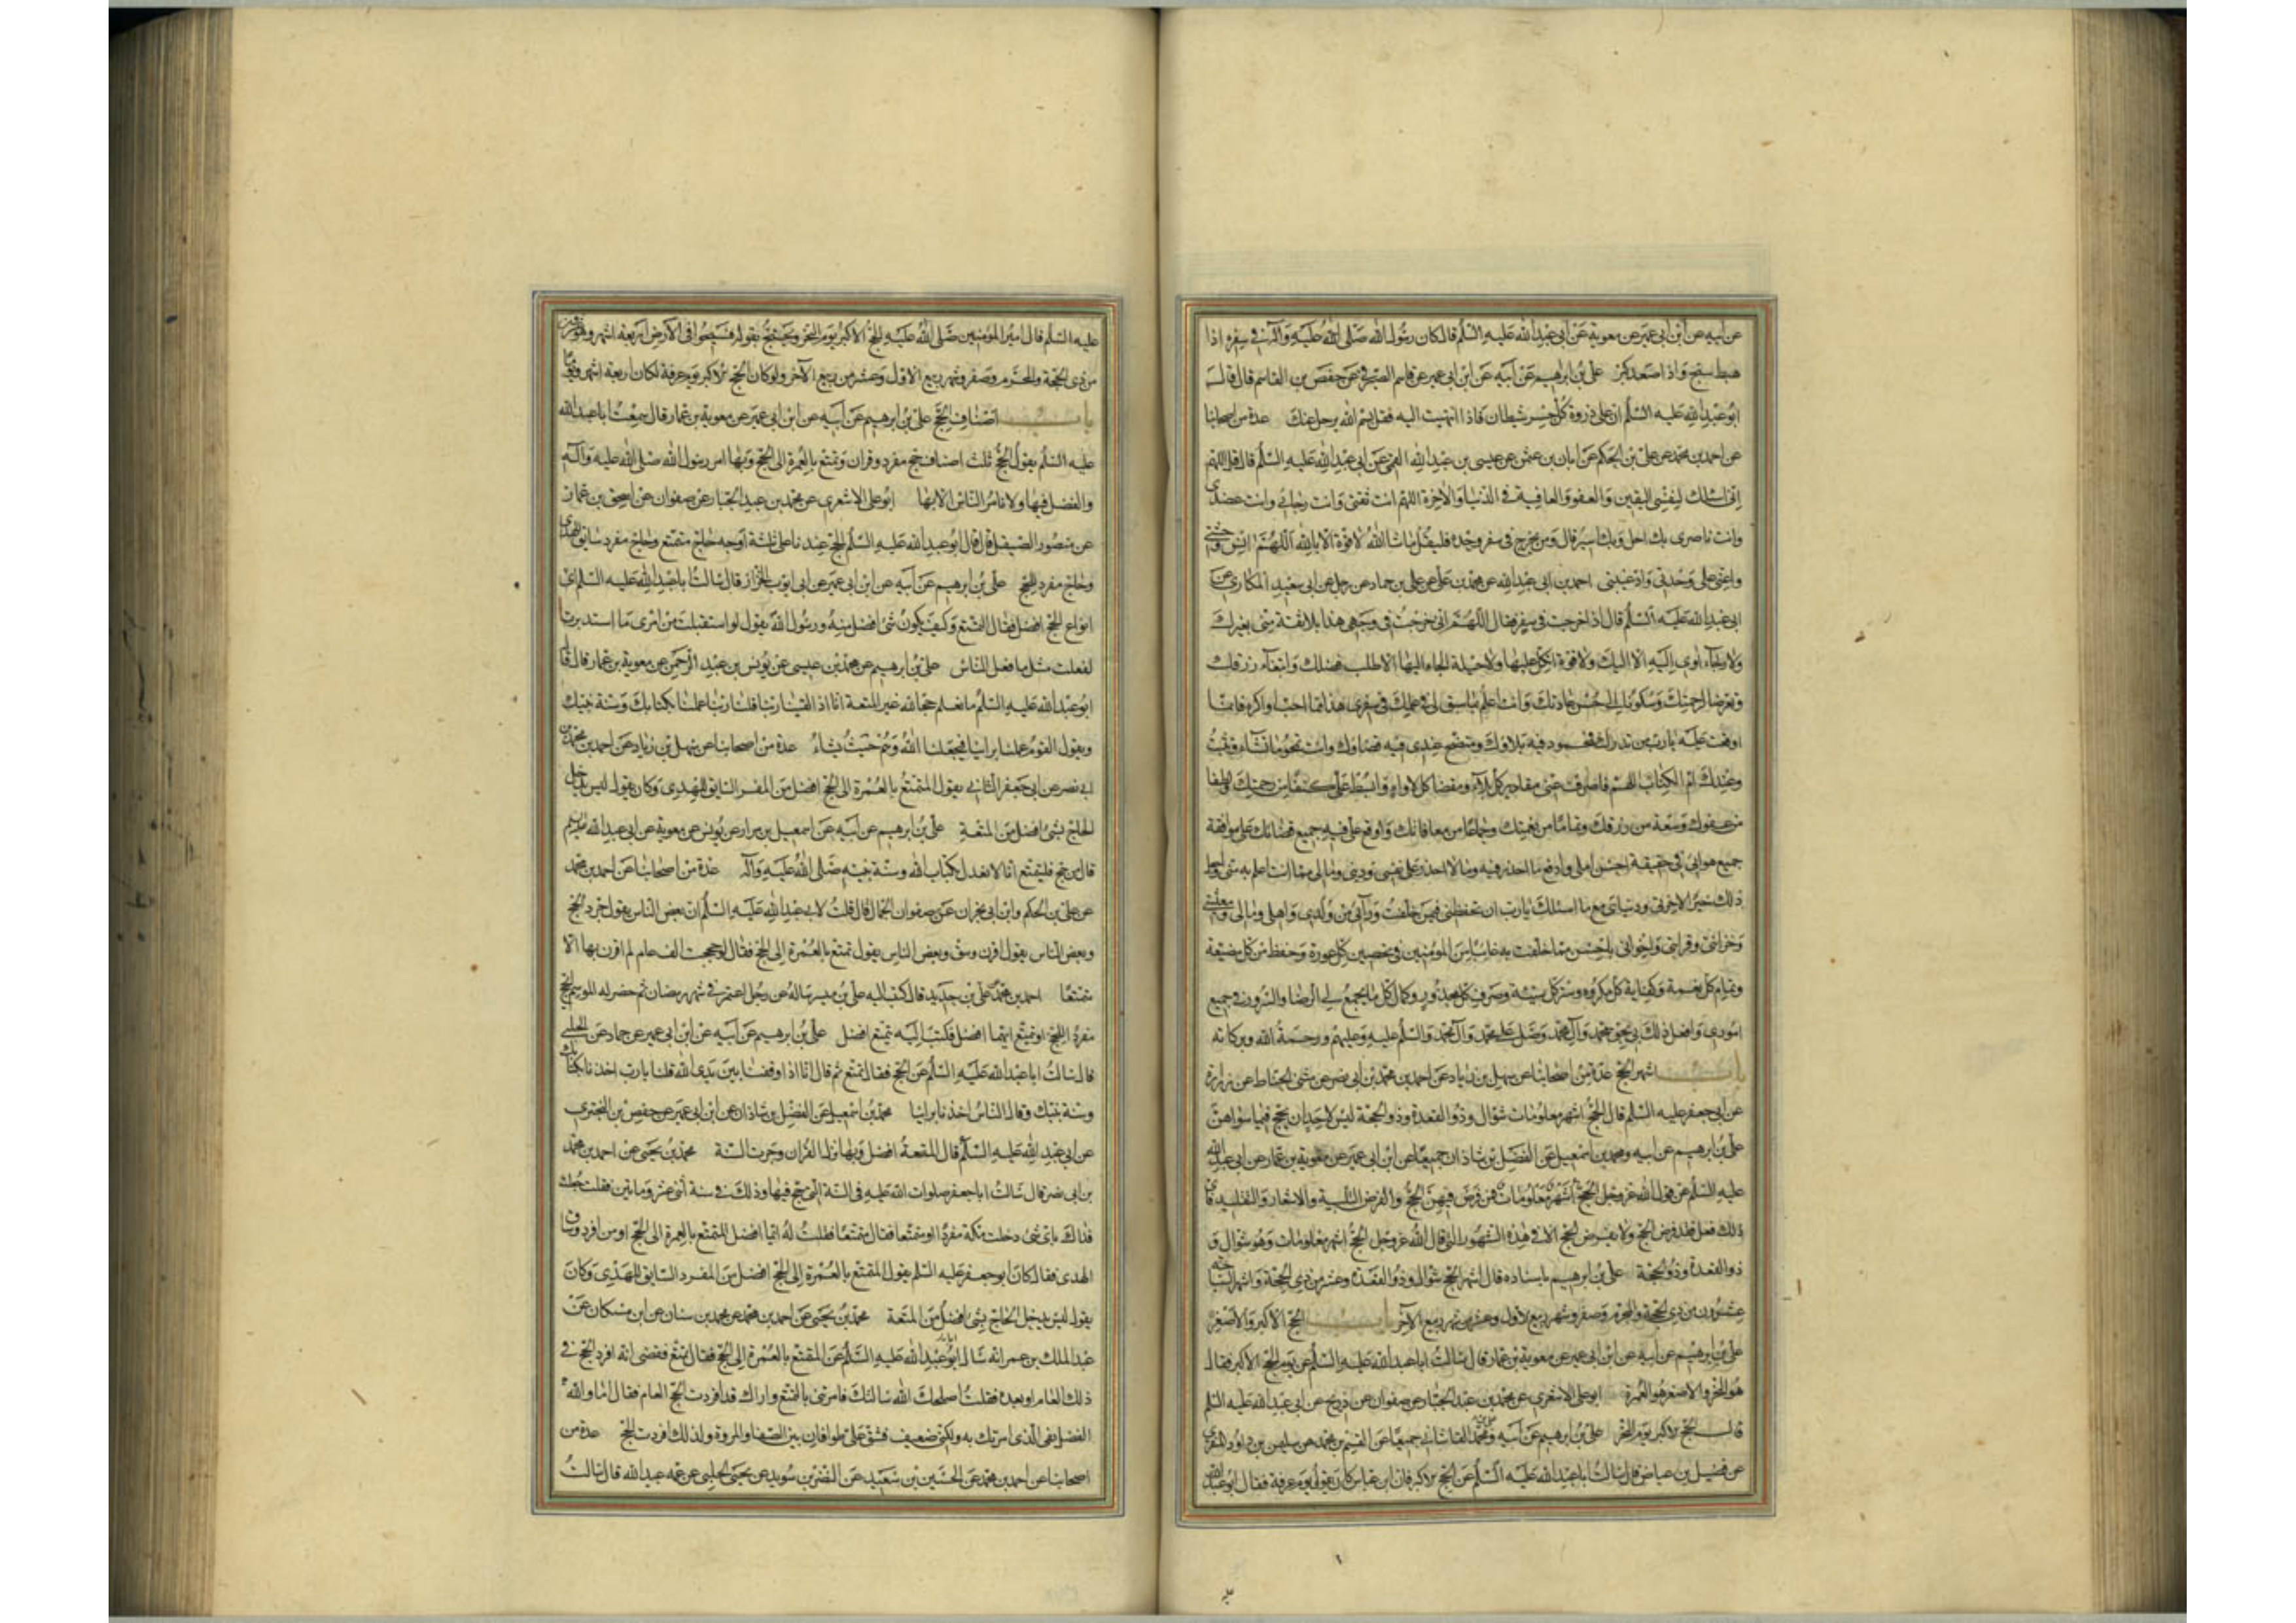 عن ابيه عن ابن ابي عمير عن معوية عن ابي عبد الله عليه السلم قال كان رسول الله صلى الله عليه وآله في سفره اذا
هبط سبح واذا صعد كبر علي بن ابرهيم عن ابيه عن ابن ابي عمير عن قاسم الصيرفي عن حفص بن القاسم قال قال
ابو عبد الله عليه السلم ان على ذروة كل جسر شيطان فاذا انتهيت اليه فقل بسم الله يرحل عنك عدة من اصحابنا
عن احمد بن محمد عن علي بن الحكم عن ابان بن عثمن عن عيسى بن عبد الله القمي عن ابي عبد الله عليه السلم قال قل اللهم
اني اسئلك لنفسي اليقين والعفو والعافية في الدنيا والاخرة اللهم انت ثقتي وانت رجائي وانت عضدي
وانت ناصري بك احل وبك اسير قال ومن يخرج في سفر وحده فليقل ما شا الله لا قوة الا بالله اللهم انس وحشتي
واعني على وحدتي واد غيبتي احمد بن ابي عبد الله عن محمد بن علي عن علي بن حماد عن رجل عن ابي سعيد المكاري عن
ابي عبد الله عليه السلم قال اذا خرجت في سفر فقال اللهم اني خرجت في وجهي هذا بلا ثقة مني بغيرك
ولا رجاء اوي اليه الا اليك ولا قوة اتكل عليها ولا حيلة الجاء اليها الا طلب فضلك وابتغاء رزقك
وتعرضا لرحمتك وسكونا الى حسن عادتك وانت اعلم بما سبق لي في علمك في سفري هذا مما احب او اكره فانما
اوقعت عليه يا رب من قدرك فمحمود فيه بلاؤك ومتضح عندي فيه قضاؤك وانت تمحو ما تشاء وتثبت
وعندك ام الكتاب اللهم فاصرف عني مقادير كل بلاء ومقضا كل لاواء وابسط علي كنفا من رحمتك ولطفا
من عفوك وسعة من رزقك وتماما من نعمتك وجماعا من معافاتك واوقع علي فيه جميع قضائك على موافقة
جميع هواي في حقيقة احسن املي وادفع ما احذر فيه وما لا احذر على نفسي وديني ومالي مما انت اعلم به مني واجعل
ذلك خيرا لاخرتي ودنياي مع ما اسئلك يا رب ان تحفظني فيمن خلفت ورآئي من ولدي واهلي ومالي ومعيشتي
وحزانتي وقرابتي واخواني باحسن مما خلفت به غائبا من المؤمنين في تحصين كل عورة وحفظ من كل مضيعة
وتمام كل نعمة وكفاية كل مكروه وستر كل سيئة وصرف كل محذور وكمال كل ما يجمع لي الرضا والسرور في جميع
اموري وافعل ذلك بي بحق محمد وآل محمد وصل على محمد وآل محمد والسلم عليه وعليهم ورحمة الله وبركاته
باب اشهر الحج عدة من اصحابنا عن سهل بن زياد عن احمد بن محمد بن ابي نصر عن مثنى الحناط عن زرارة
عن ابي جعفر عليه السلم قال الحج اشهر معلومات شوال وذو القعدة وذو الحجة ليس لاحد ان يحج فيما سواهن
علي بن ابرهيم عن ابيه ومحمد بن اسمعيل عن الفضل بن شاذان جميعا عن ابن ابي عمير عن معوية بن عمار عن ابي عبد الله
عليه السلم عن قول الله عز وجل الحج اشهر معلومات فمن فرض فيهن الحج والفرض التلبية والاشعار والتقليد فاي
ذلك فعل فقد فرض الحج ولا يفرض الحج الا في هذه الشهور التي قال الله عز وجل الحج اشهر معلومات وهو شوال و
ذو القعدة وذو الحجة علي بن ابرهيم باسناده قال اشهر الحج شوال وذو القعدة وعشر من ذي الحجة واشهر السياحة
عشرون من ذي الحجة والمحرم وصفر وشهر ربيع الاول وعشر من شهر ربيع الآخر باب الحج الاكبر والاصغر
علي بن ابرهيم عن ابيه عن ابن ابي عمير عن معوية بن عمار قال سالت ابا عبد الله عليه السلم عن يوم الحج الاكبر فقال
هو النحر والاصغر هو العمرة ابو علي الاشعري عن محمد بن عبد الجبار عن صفوان عن ذريح عن ابي عبد الله عليه السلم
قال الحج الاكبر يوم النحر علي بن ابرهيم عن ابيه وعلي بن محمد القاشاني جميعا عن القسم بن محمد عن سليمن بن داود المنقري
عن فضيل بن عياض قال سالت ابا عبد الله عليه السلم عن الحج الاكبر فان ابن عباس كان يقول يوم عرفة فقال ابو عبد الله
عليه السلم قال امير المؤمنين صلى الله عليه الحج الاكبر يوم النحر ويحتج بقوله فسيحوا في الارض اربعة اشهر وهو عشرون
من ذي الحجة والمحرم وصفر وشهر ربيع الاول وعشر من ربيع الآخر ولو كان الحج الاكبر يوم عرفة لكان اربعة اشهر ويوما
باب اصناف الحج علي بن ابرهيم عن ابيه عن ابن ابي عمير عن معوية بن عمار قال سمعت ابا عبد الله
عليه السلم يقول الحج ثلث اصناف حج مفرد وقران وتمتع بالعمرة الى الحج وبها امر رسول الله صلى الله عليه وآله
والفضل فيها ولا نامر الناس الا بها ابو علي الاشعري عن محمد بن عبد الجبار عن صفوان عن اسحق بن عمار
عن منصور الصيقل قال قال ابو عبد الله عليه السلم الحج عندنا على ثلثة اوجه حاج متمتع وحاج مفرد سابق الهدي
وحاج مفرد للحج علي بن ابرهيم عن ابيه عن ابن ابي عمير عن ابي ايوب الخزاز قال سالت ابا عبد الله عليه السلم اي
انواع الحج افضل فقال التمتع وكيف يكون شئ افضل منه ورسول الله يقول لو استقبلت من امري ما استدبرت
لفعلت مثل ما فعل الناس علي بن ابرهيم عن محمد بن عيسى عن يونس بن عبد الرحمن عن معوية بن عمار قال قال
ابو عبد الله عليه السلم ما نعلم حجا لله غير المتعة انا اذا لقينا ربنا قلنا ربنا عملنا بكتابك وسنة نبيك
ويقول القوم عملنا براينا فيجعلنا الله وهم حيث يشاء عدة من اصحابنا عن سهل بن زياد عن احمد بن محمد بن
ابي نصر عن ابي جعفر الثاني يقول المتمتع بالعمرة الى الحج افضل من المفرد السابق للهدي وكان يقول ليس يدخل
الحاج بشئ افضل من المتعة علي بن ابرهيم عن ابيه عن اسمعيل بن مرار عن يونس عن معوية عن ابي عبد الله عليه السلم
قال من حج فليتمتع انا لا نعدل بكتاب الله وسنة نبيه صلى الله عليه وآله عدة من اصحابنا عن احمد بن محمد
عن علي بن الحكم وابن ابي نجران عن صفوان الجمال قال قلت لابي عبد الله عليه السلم ان بعض الناس يقول جرد الحج
وبعض الناس يقول اقرن وسق وبعض الناس يقول تمتع بالعمرة الى الحج فقال لو حججت الف عام لم اقرن بها الا
متمتعا احمد بن محمد عن علي بن حديد قال كتب اليه علي بن ميسر يساله عن رجل اعتمر في شهر رمضان ثم حضر له الموسم ايحج
مفردا للحج او يتمتع ايهما افضل فكتب اليه يتمتع افضل علي بن ابرهيم عن ابيه عن ابن ابي عمير عن حماد عن الحلبي
قال سالت ابا عبد الله عليه السلم عن الحج فقال تمتع ثم قال انا اذا وقفنا بين يدي الله قلنا يا رب اخذنا بكتابك
وسنة نبيك وقال الناس اخذنا براينا محمد بن اسمعيل عن الفضل بن شاذان عن ابن ابي عمير عن حفص بن البختري
عن ابي عبد الله عليه السلم قال المتعة افضل وبها نزل القران وجرت السنة محمد بن يحيى عن احمد بن محمد
بن ابي نصر قال سالت ابا جعفر صلوات الله عليه في السنة التي حج فيها وذلك في سنة اثني عشر ومائتين فقلت جعلت
فداك باي شئ دخلت مكة مفردا او متمتعا فقال متمتعا فقلت له ايما افضل المتمتع بالعمرة الى الحج او من افرد وساق
الهدي فقال كان ابو جعفر عليه السلم يقول المتمتع بالعمرة الى الحج افضل من المفرد السابق للهدي وكان
يقول ليس يدخل الحاج بشئ افضل من المتعة محمد بن يحيى عن احمد بن محمد عن محمد بن سنان عن ابن مسكان عن
عبد الملك بن عمر انه سال ابا عبد الله عليه السلم عن التمتع بالعمرة الى الحج فقال تمتع فقضى انه افرد الحج في
ذلك العام او بعده فقلت اصلحك الله سالتك فامرتني بالتمتع واراك قد افردت الحج العام فقال اما والله
الفضل لفي الذي امرتك به ولكني ضعيف فشق علي طوافان بين الصفا والمروة ولذلك افردت الحج عدة من
اصحابنا عن احمد بن محمد عن الحسين بن سعيد عن النضر بن سويد عن يحيى الحلبي عن عمه عبيد الله قال سالت